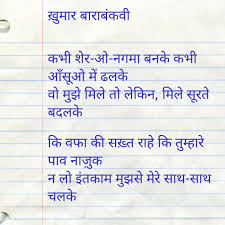 ख़ुमार बाराबंकवी
कभी शेर-ओ-नगमा बनके कभी
आँसूओ में ढलके
वो मुझे मिले तो लेकिन, मिले सूरते
बदलके
कि वफा की सख़्त राहे कि तुम्हारे
पाव नाज़ुक
न लो इंतकाम मुझसे मेरे साथ-साथ
चलके